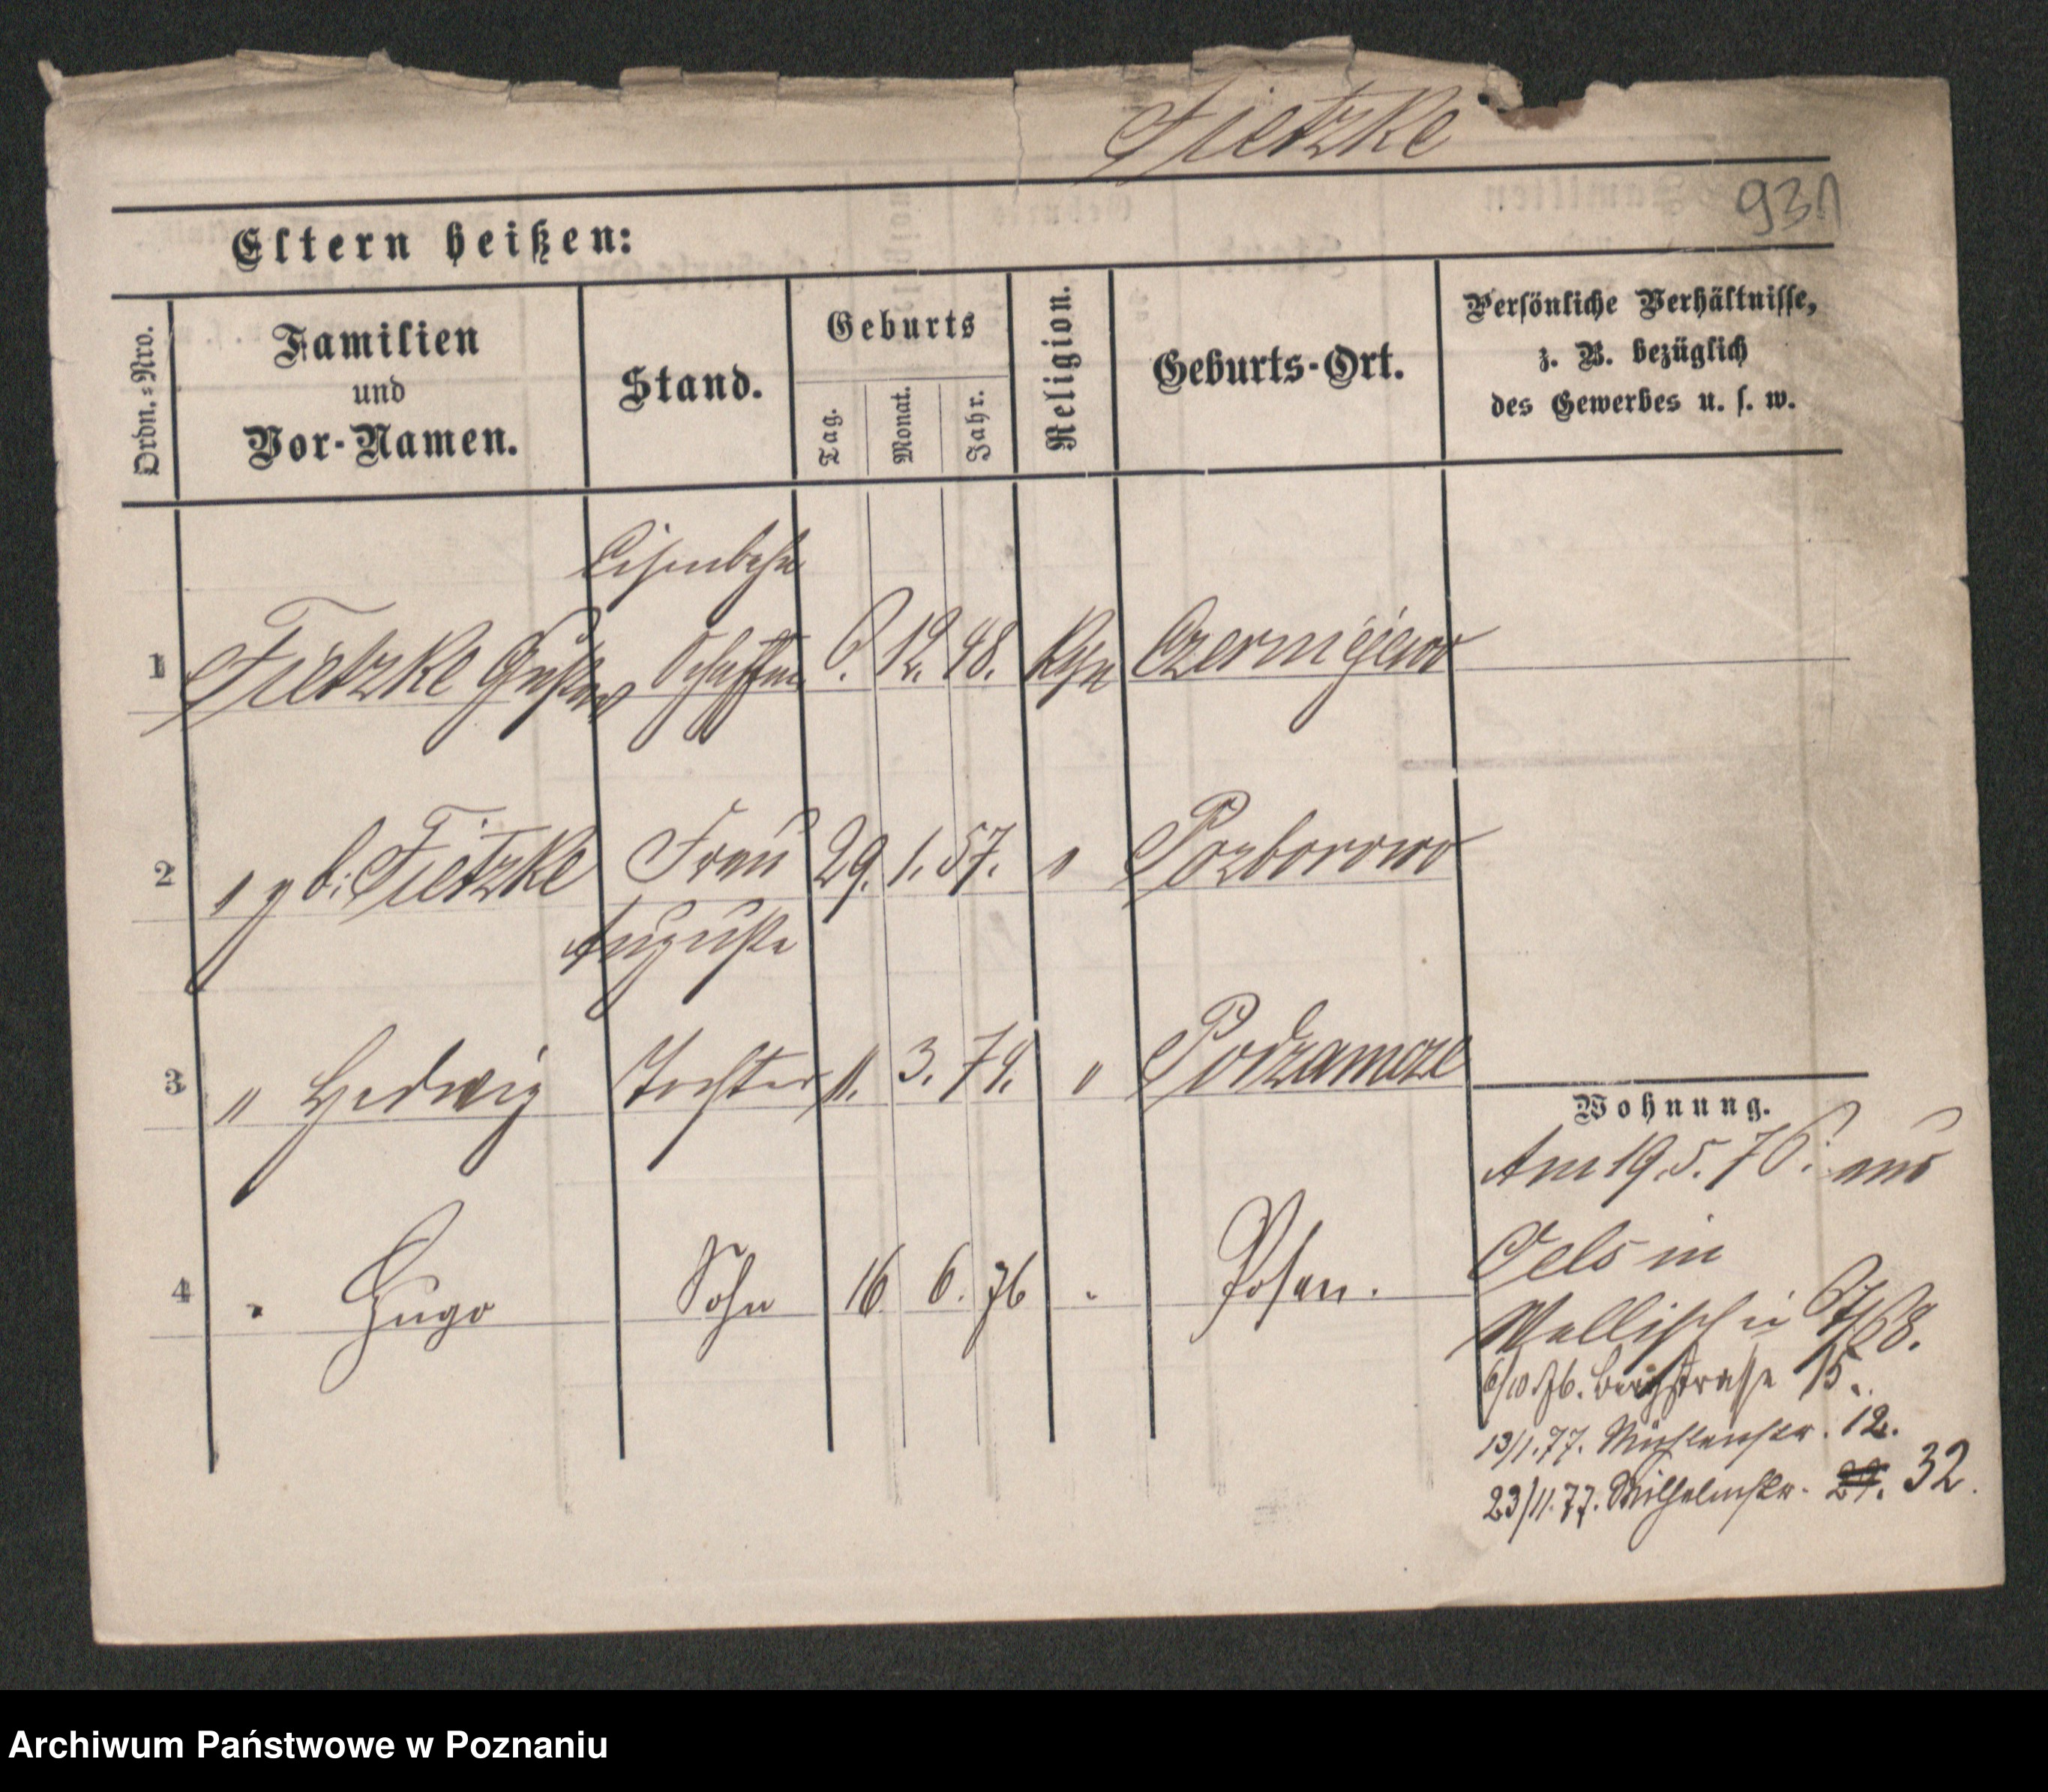 Fietzke
931
Eltern heißen:
Ordn.=Nro.
Familien
und
Vor-Namen.
Stand.
Geburts
Tag.
Monat.
Jahr.
Religion.
Geburts-Ort.
Persönliche Verhältnisse,
z. B. bezüglich
des Gewerbes u. s. w.
Eisenbahn
1 Fietzke Gustav Schaffner 6. 12. 48. Czerniejewo
2 " geb: Fietzke Frau 29. 1. 57. "
Auguste
3 " Hedwig Tochter 11. 3. 74. " Podzamcze
Wohnung.
Am 19.5.76. aus
Oels in
Wallischei 67/68.
4 " Hugo Sohn 16 6. 76 " Posen.
6/10.76. Bergstrasse 15.
13/1.77. Mühlenstr. 12.
23/11.77. Wilhelmstr. 29. 32.
Archiwum Państwowe w Poznaniu